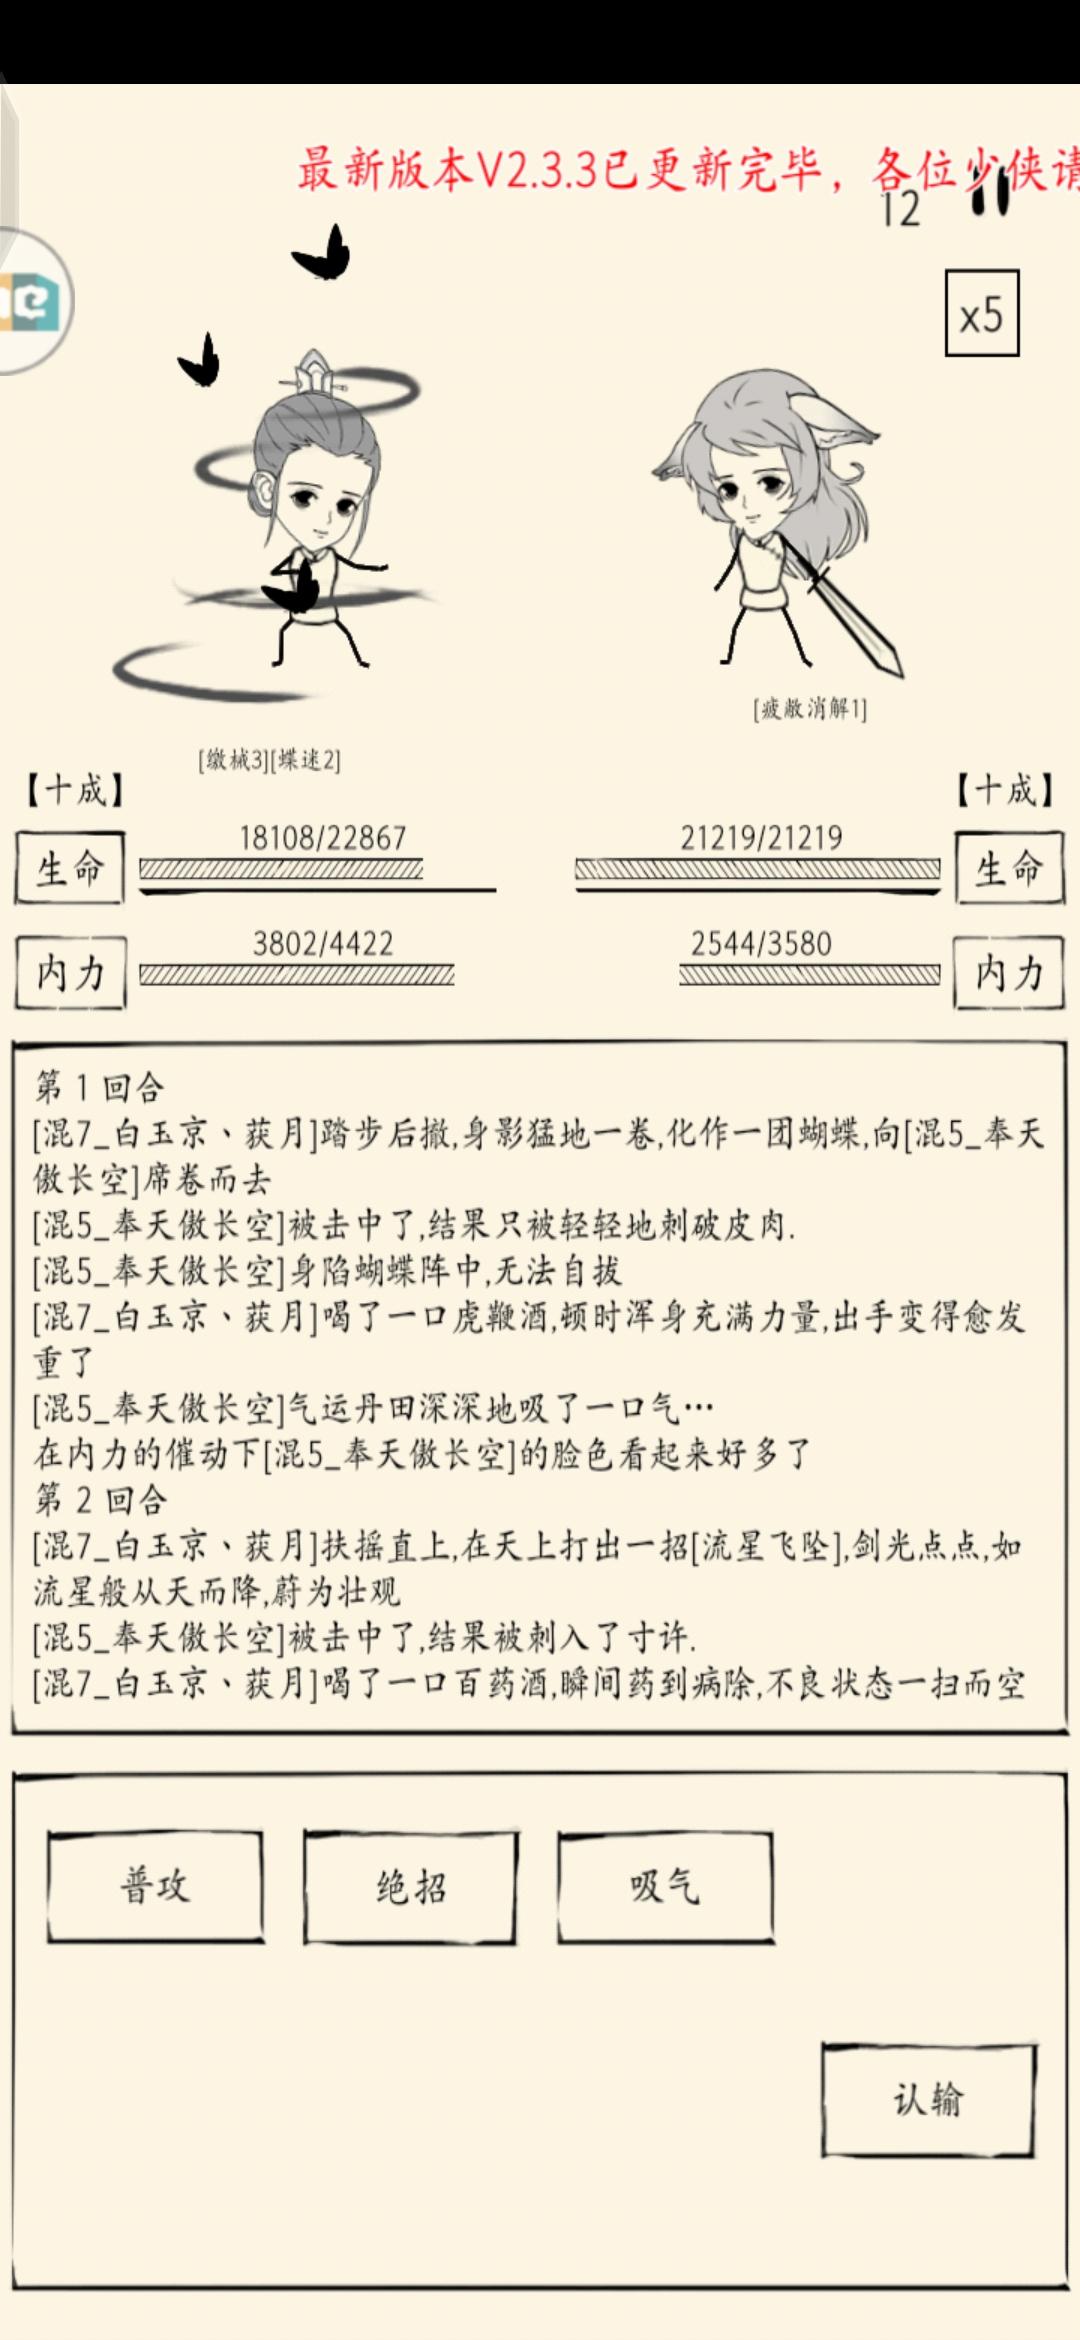 最新版本V2.3.3已更新完毕，各位少侠请
12
x5
[疲敝消解1]
[缴械3][蝶迷2]
【十成】
【十成】
18108/22867
21219/21219
生命
生命
3802/4422
2544/3580
内力
内力
第 1 回合
[混7_白玉京、荻月]踏步后撤,身影猛地一卷,化作一团蝴蝶,向[混5_奉天
傲长空]席卷而去
[混5_奉天傲长空]被击中了,结果只被轻轻地刺破皮肉.
[混5_奉天傲长空]身陷蝴蝶阵中,无法自拔
[混7_白玉京、荻月]喝了一口虎鞭酒,顿时浑身充满力量,出手变得愈发
重了
[混5_奉天傲长空]气运丹田深深地吸了一口气…
在内力的催动下[混5_奉天傲长空]的脸色看起来好多了
第 2 回合
[混7_白玉京、荻月]扶摇直上,在天上打出一招[流星飞坠],剑光点点,如
流星般从天而降,蔚为壮观
[混5_奉天傲长空]被击中了,结果被刺入了寸许.
[混7_白玉京、荻月]喝了一口百药酒,瞬间药到病除,不良状态一扫而空
普攻
绝招
吸气
认输